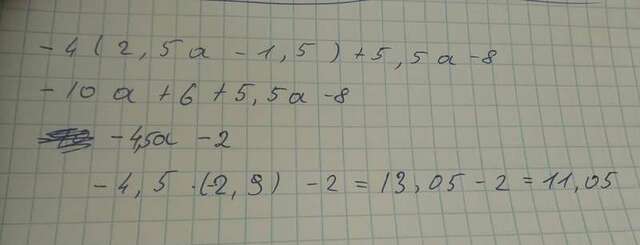 -4(2,5a-1,5)+5,5a-8
-10a+6+5,5a-8
-4,5a-2
-4,5·(-2,9)-2=13,05-2=11,05